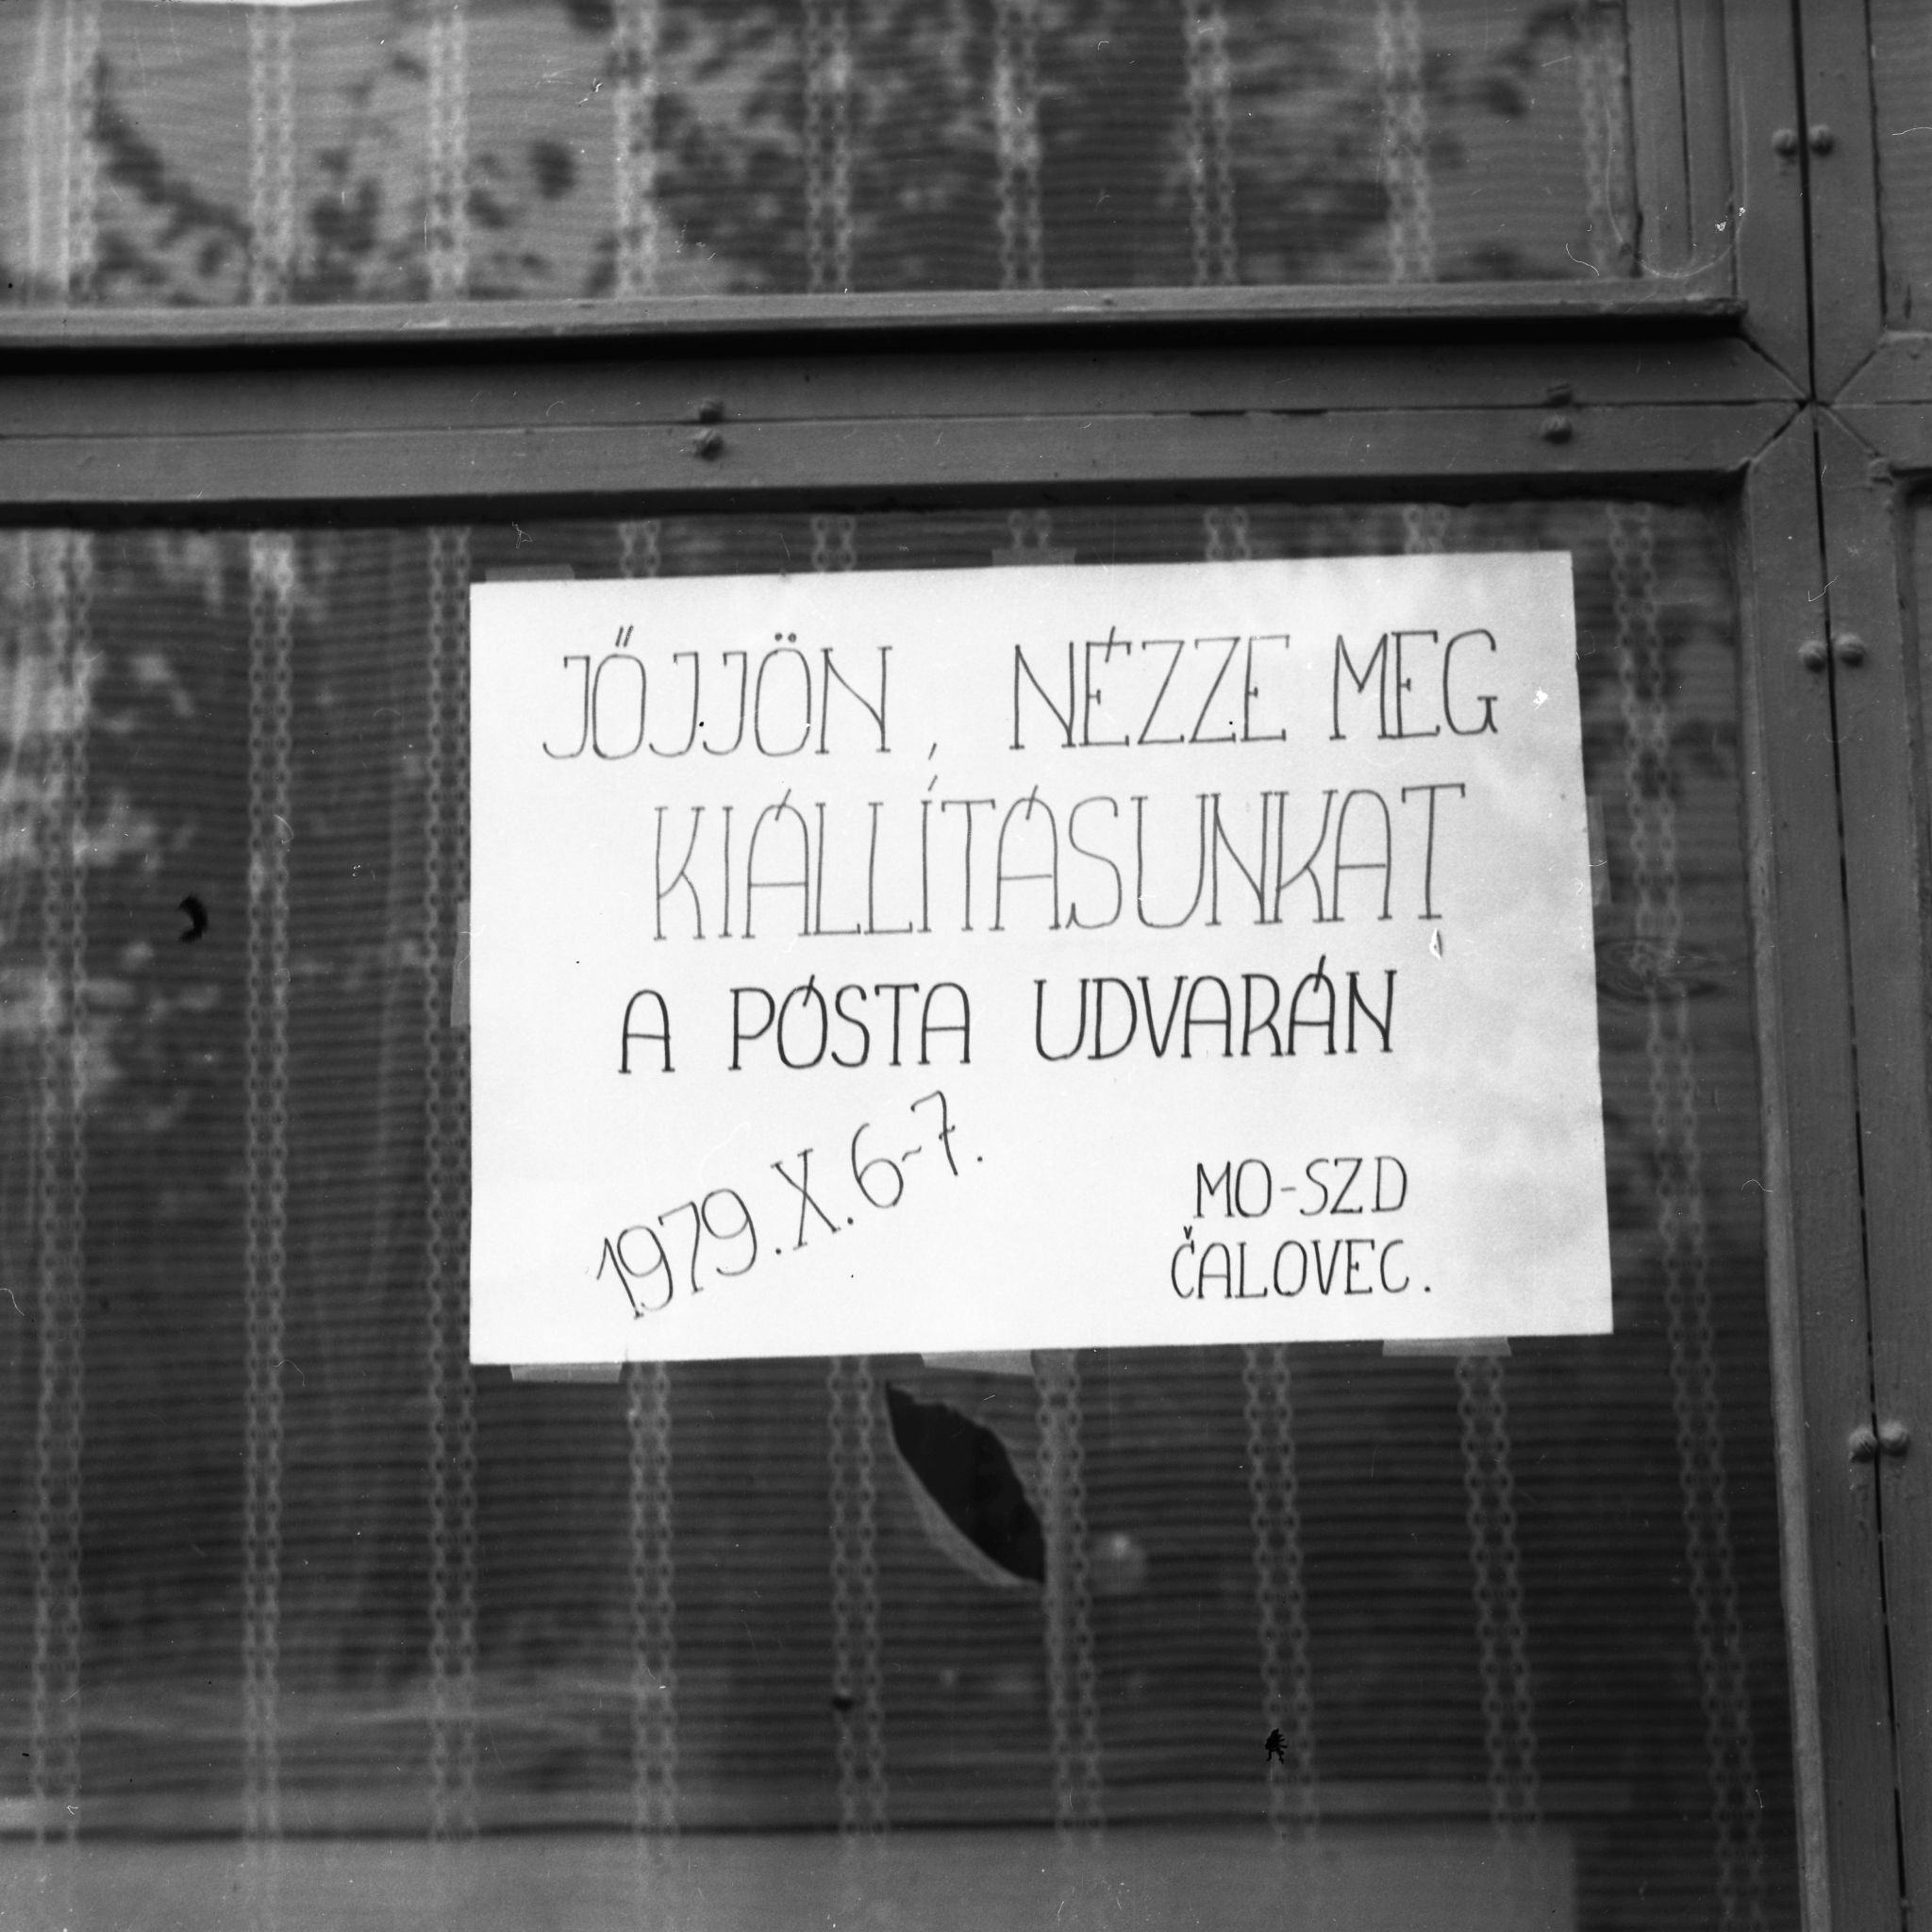 JŐJJÖN, NÉZZE MEG
KIÁLLÍTÁSUNKAT
A PÓSTA UDVARÁN
1979.X.6-7.
MO-SZD
ČALOVEC.